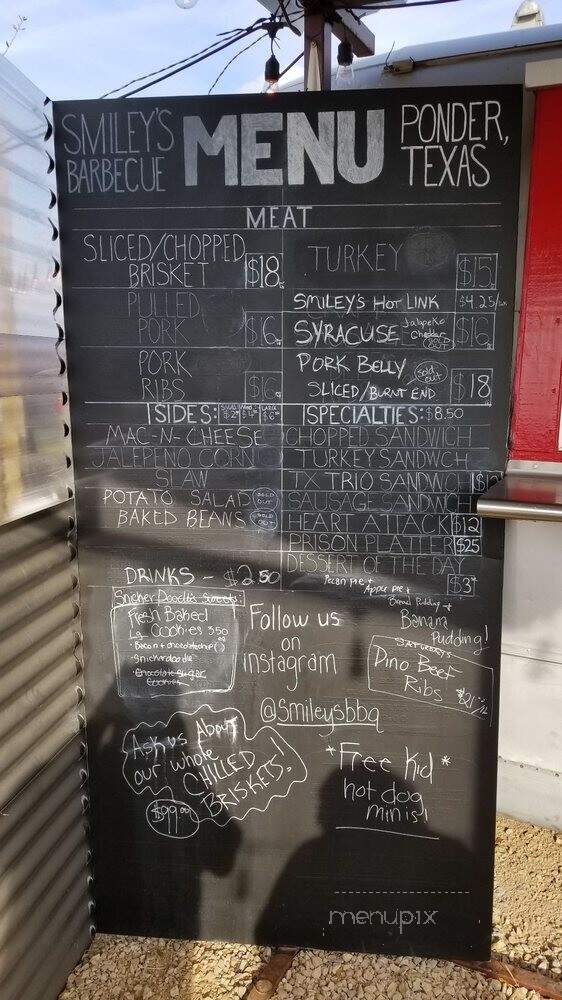 SMILEY'S
BARBECUE
MENU
PONDER,
TEXAS
MEAT
SLICED/CHOPPED
BRISKET $18
PULLED
PORK $16
PORK
RIBS $16
TURKEY $15
SMILEY'S HOT LINK $4.25
SYRACUSE Jalapeno Cheddar $16
PORK BELLY sold out
SLICED/BURNT END $18
SIDES:
MAC-N-CHEESE
JALEPENO CORN
SLAW
POTATO SALAD SOLD OUT
BAKED BEANS SOLD OUT
SPECIALTIES: $8.50
CHOPPED SANDWICH
TURKEY SANDWCH
TX TRIO SANDWCH
SAUSAGE SANDWCH
HEART ATTACK $12
PRISON PLATTER $25
DESSERT OF THE DAY
Pecan pie + $3
Apple pie +
Bread Pudding +
Banana
Pudding!
DRINKS - $2.50
Snicker Doodle Sweets:
Fresh Baked
Lg Cookies 3.50
Snickerdoodle
Chocolate Sugar
Cookies
Follow us
on
instagram
@Smileysbbq
SATURDAYS
Dino Beef
Ribs
Ask us About
our whole
CHILLED
BRISKETS!
$99.00
*Free Kid*
hot dog
minis!
menupix